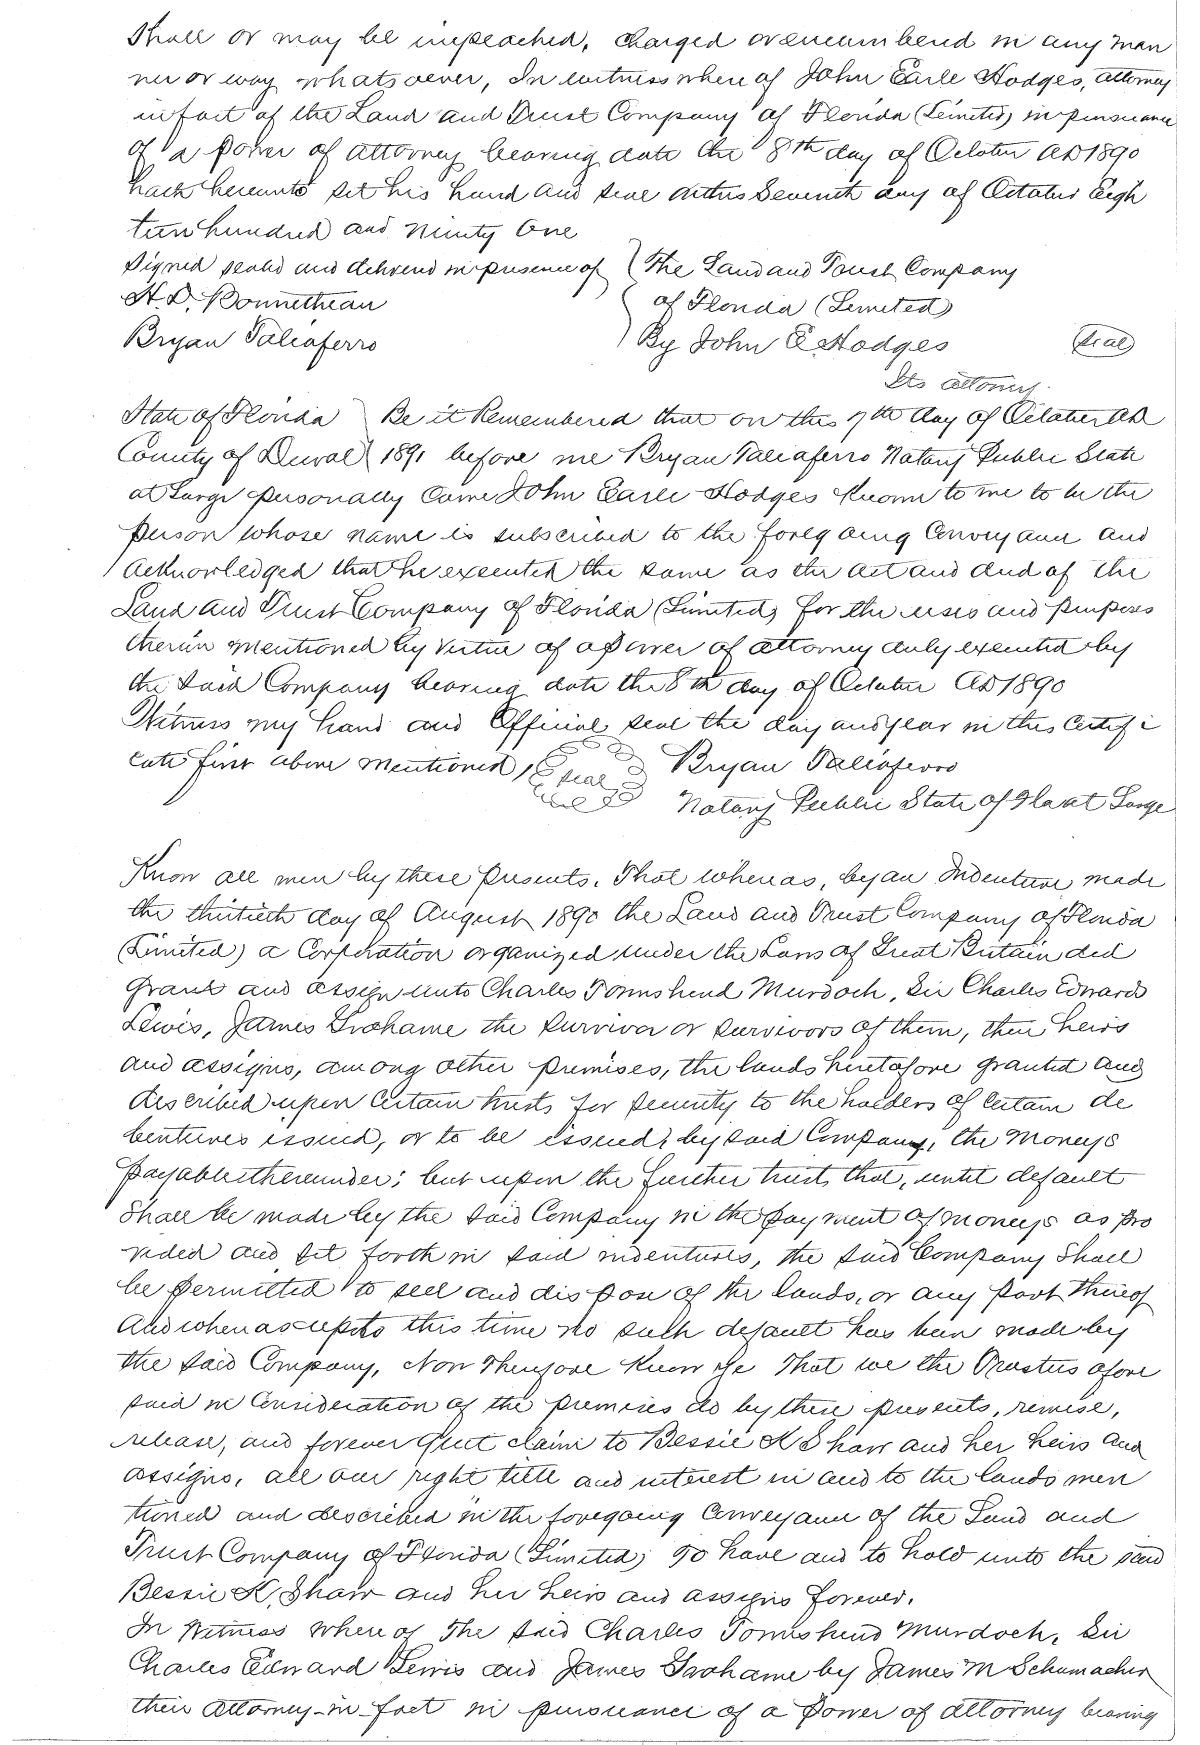 Shall or may be impeached, charged or encumbered in any man
ner or way whatsoever, In witness where of John Earle Hodges, attorney
in fact of the Land and Trust Company of Florida (Limited) in pursuance
of a power of attorney bearing date the 8th day of October AD 1890
hath hereunto set his hand and seal on this Seventh day of October Eigh
teen hundred and ninety one
Signed sealed and delivered in presence of ( The Land and Trust Company
of Florida (Limited)
Bryan Taliaferro ) By John E. Hodges (seal)
Its attorney.
State of Florida ) Be it Remembered that on this 7th day of October AD
County of Duval ) 1891 before me Bryan Taliaferro Notary Public State
at Large personally came John Earle Hodges known to me to be the
person whose name is subscribed to the foregoing Conveyance and
acknowledged that he executed the same as the act and deed of the
Land and Trust Company of Florida (Limited) for the uses and purposes
therein mentioned by virtue of a power of attorney duly executed by
the said Company bearing date the 8th day of October AD 1890
Witness my hand and Official seal the day and year in this certifi
cate first above mentioned, seal Bryan Taliaferro
Notary Public State of Fla at Large
Know all men by these presents. That whereas, by an Indenture made
the thirtieth day of August 1890 the Land and Trust Company of Florida
(Limited) a Corporation organized under the Laws of Great Britain did
grant and assign unto Charles Townshend Murdoch, Sir Charles Edward
Lewis, James Grahame the survivor or survivors of them, their heirs
and assigns, among other premises, the lands heretofore granted and
described upon certain trusts for security to the holders of certain de
bentures issued, or to be issued, by said Company, the moneys
payable thereunder; but upon the further trust, that, until default
shall be made by the said Company in the payment of moneys as pro
vided and set forth in said indentures, the said Company shall
be permitted to sell and dispose of the lands, or any part thereof
And whereas up to this time no such default has been made by
the said Company, Now Therefore Know Ye That we the Trustees afore
said in Consideration of the premises do by these presents, remise,
release, and forever quit claim to Bessie K Shaw and her heirs and
assigns, all our right title and interest in and to the lands men
tioned and described in the foregoing conveyance of the Land and
Trust Company of Florida (Limited) To have and to hold unto the said
Bessie K. Shaw and her heirs and assigns forever.
In Witness where of The said Charles Townshend Murdoch, Sir
Charles Edward Lewis and James Grahame by James M Schumacher
their Attorney-in-fact in pursuance of a Power of attorney bearing